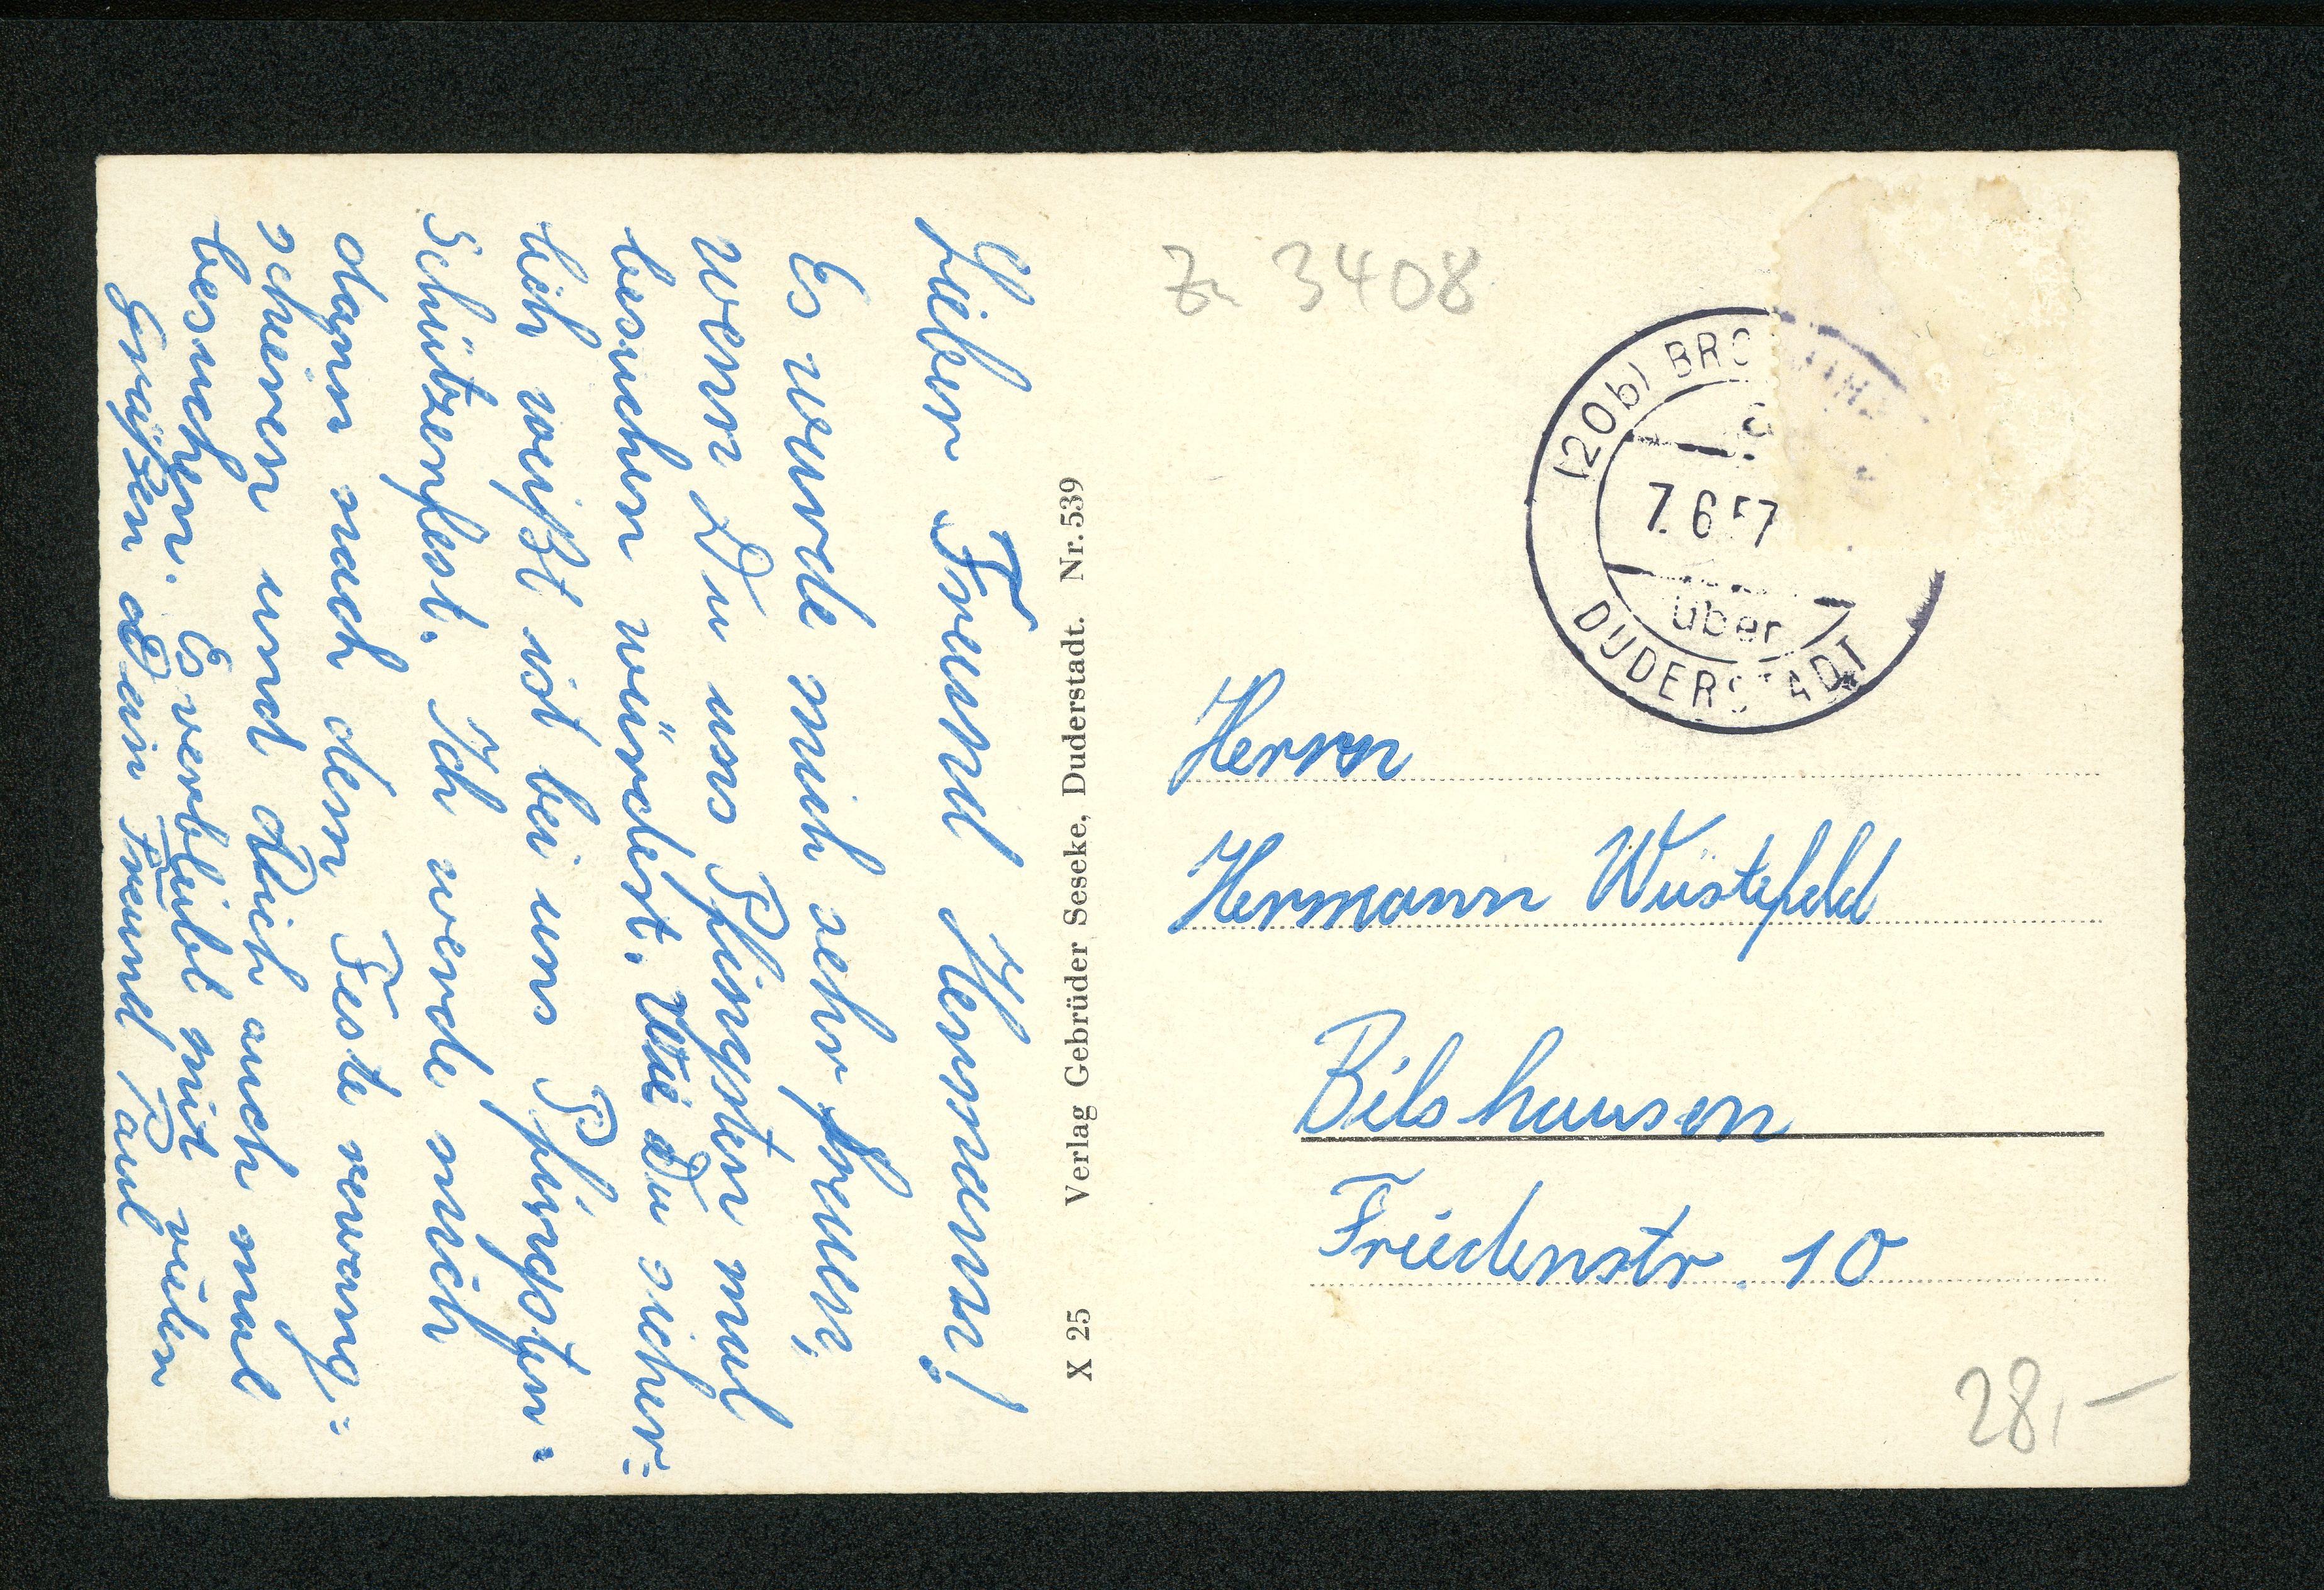 Lieber Freund Hermann!
Es würde mich sehr freuen,
wenn Du uns Pfingsten mal
besuchen würdest. Wie Du sicher=
lich weißt ist bei uns Pfingsten=
Schützenfest. Ich werde mich
dann nach dem Feste revang=
schieren und Dich auch mal
besuchen. Es verbleibt mit vielen
Grüßen Dein Freund Paul
X 25 Verlag Gebrüder Seseke, Duderstadt. Nr. 539
3408
(20b) BRO
7.6.57
über
DUDERSTADT
Herrn
Hermann Wüstefeld
Bilshausen
Friedenstr. 10
28,-